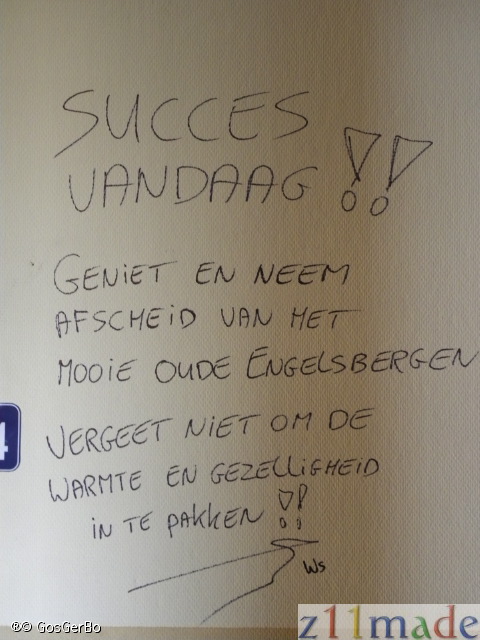 SUCCES
VANDAAG !!
GENIET EN NEEM
AFSCHEID VAN HET
MOOIE OUDE ENGELSBERGEN
4
VERGEET NIET OM DE
WARMTE EN GEZELLIGHEID
IN TE PAKKEN !!
Ws
®© GosGerBo
z11made